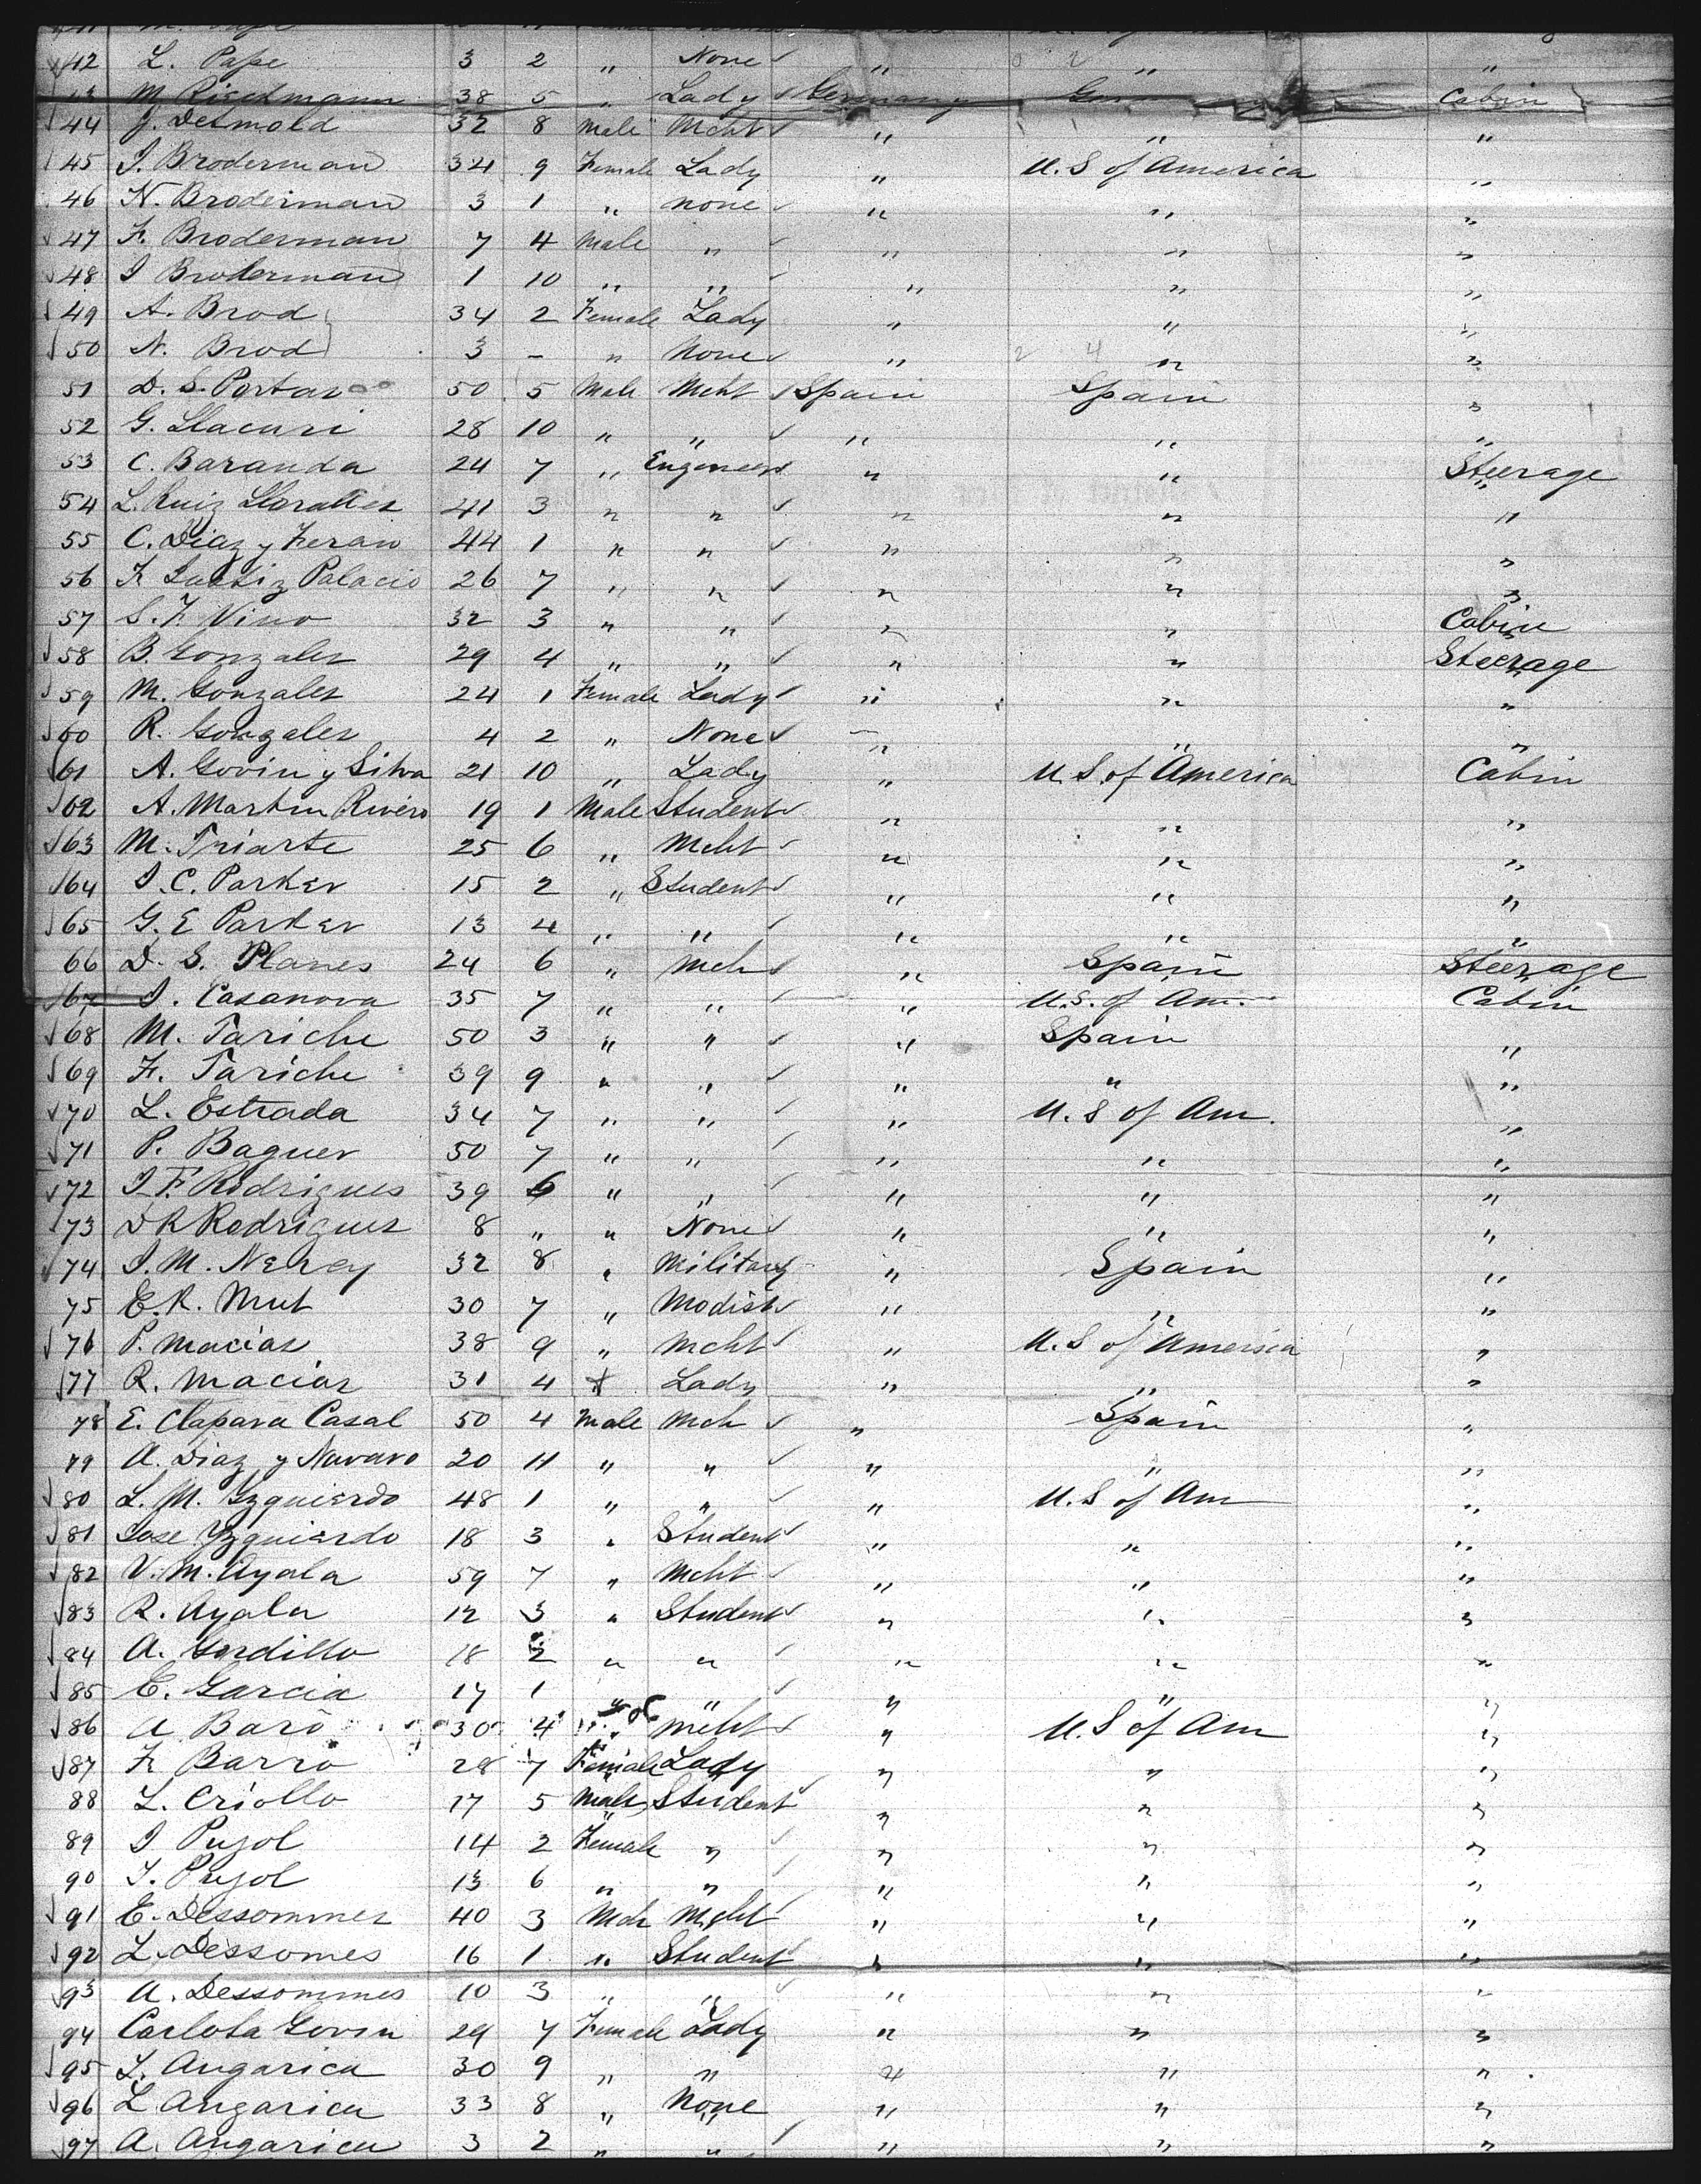 42 L. Pape 3 2 " None " " "
M. Riedmann 38 5 " Lady Germany Cabin
44 J. Detmold 32 8 Male Mcht " " "
45 I. Broderman 34 9 Female Lady " U.S of America "
46 N. Broderman 3 1 " none " " "
47 F. Broderman 7 4 Male " " " "
48 I Broderman 1 10 " " " " "
49 A. Brod 34 2 Female Lady " " "
50 N. Brod 3 - " None " 2 4 " "
51 D. S. Portas 50 5 Male Mcht Spain Spain "
52 G. Llacuri 28 10 " " " " "
53 C. Baranda 24 7 " Engineer " " Steerage
54 L. Ruiz 41 3 " " " " "
55 C. Diaz y Feran 44 1 " " " " "
56 F. Palacio 26 7 " " " " "
57 S. F. Nino 32 3 " " " " Cabin
58 B. Gonzales 29 4 " " " " Steerage
59 M. Gonzales 24 1 Female Lady " " "
60 R. Gonzales 4 2 " None " " "
61 A. Govin y Silva 21 10 " Lady " U.S. of America Cabin
62 A. Martin Rivero 19 1 Male Student " " "
63 M. Triarte 25 6 " Mcht " " "
64 I. C. Parker 15 2 " Student " " "
65 G. E Parker 13 4 " " " " "
66 D. S. Planes 24 6 " Mch " Spain Steerage
67 I. Casanova 35 7 " " " U.S. of Am. Cabin
68 M. Tariche 50 3 " " " Spain "
69 F. Tariche 39 9 " " " " "
70 L. Estrada 34 7 " " " U.S of Am. "
71 P. Baguer 50 7 " " " " "
72 I. F. Rodrigues 39 6 " " " " "
73 D R Rodriguez 8 " " None " " "
74 I. M. Nerey 32 8 " Military " Spain "
75 E. R. Mut 30 7 " Modist " " "
76 P. Macias 38 9 " Mcht " U.S of America "
77 R. Macias 31 4 f Lady " " "
78 E. Clapara Casal 50 4 Male Mch " Spain "
79 A. Diaz y Navaro 20 11 " " " " "
80 L. M. Yzquierdo 48 1 " " " U.S of Am "
81 Jose Yzquierdo 18 3 " Student " " "
82 V. M. Ayala 59 7 " Mcht " " "
83 R. Ayala 12 3 " Student " " "
84 A. Gordillo 18 2 " " " " "
85 E. Garcia 17 1 " " " " "
86 A Baro 30 4 " Mcht " U.S of Am "
87 F. Barro 28 7 Female Lady " " "
88 L. Criollo 17 5 Male Student " " "
89 I Pujol 14 2 Female " " " "
90 T. Pujol 13 6 " " " " "
91 E. Dessommes 40 3 Mch Mcht " " "
92 L. Dessomes 16 1 " Student " " "
93 A. Dessommes 10 3 " " " " "
94 Carlota Govin 29 7 Female Lady " " "
95 L. Angarica 30 9 " " " " "
96 L Angarica 33 8 " None " " "
97 A. Angarica 3 2 " " " " "